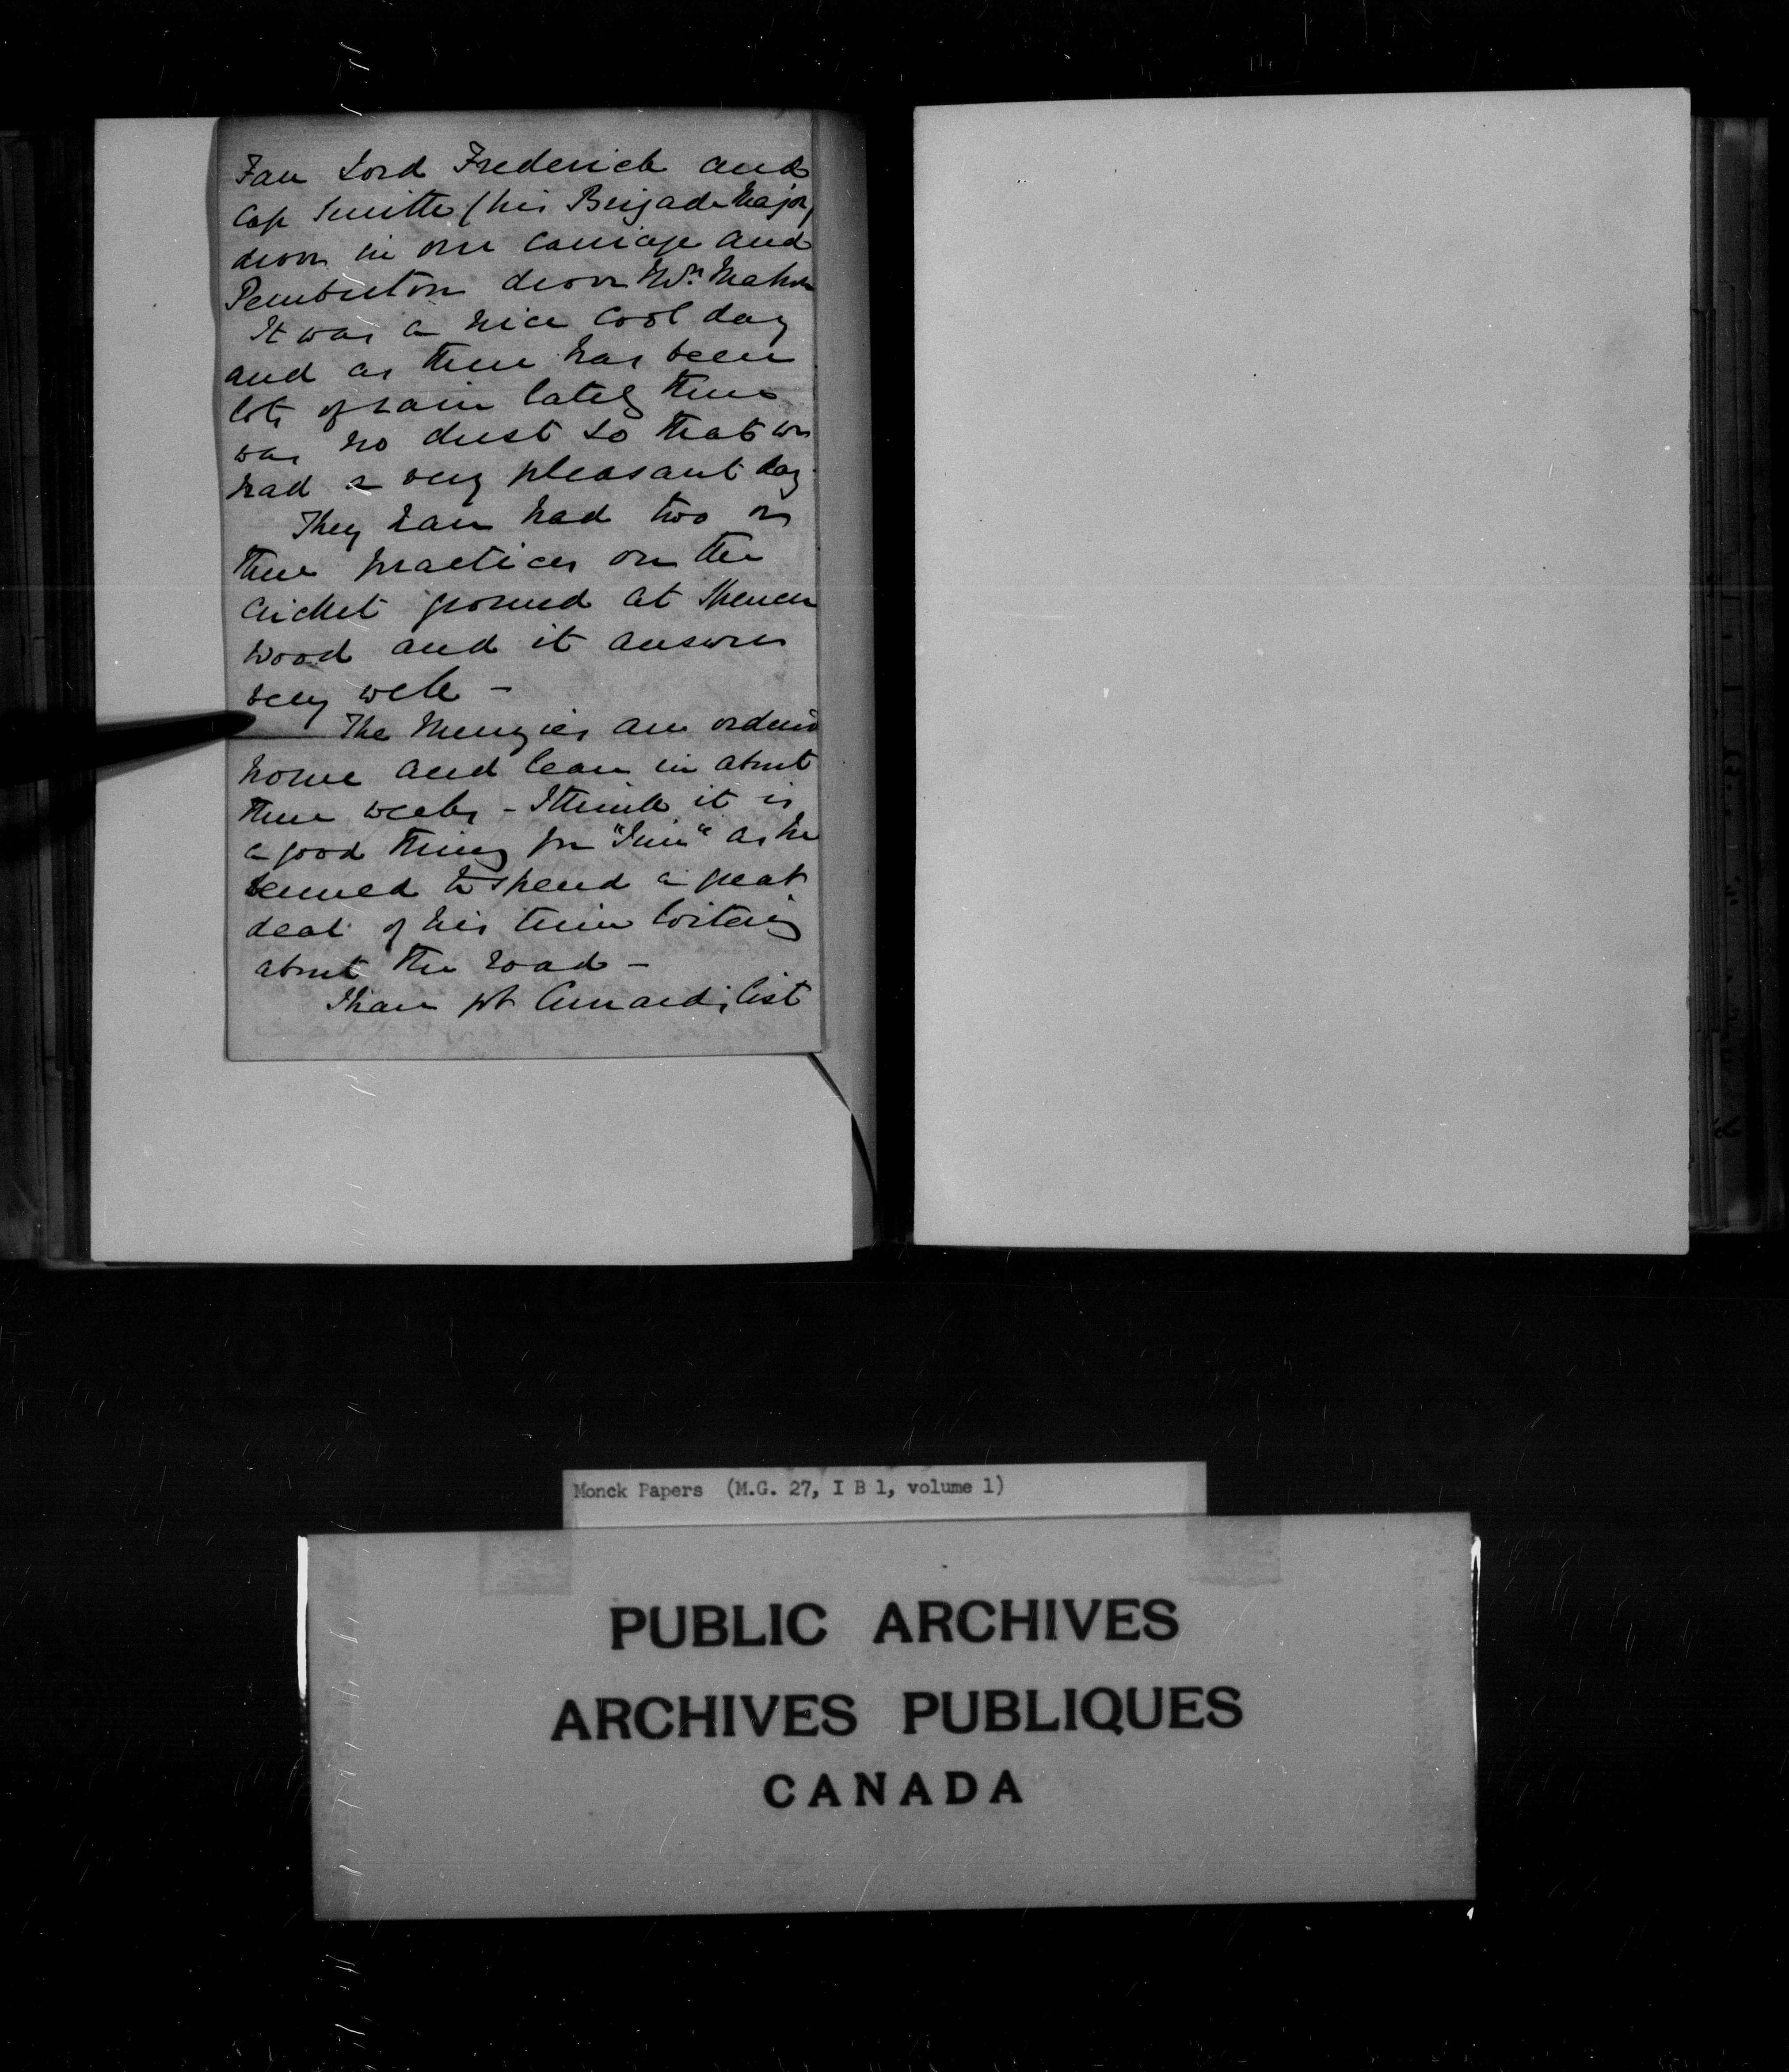 Fan Lord Frederick and
Cap Smith (his Brigade Major)
drove in one carriage and
Pemberton drove Mrs. Mahon
It was a nice cool day
and as there has been
lots of rain lately there
was no dust so that we
had a very pleasant day.
They have had two or
three practices on the
Cricket ground at Spencer
wood and it answers
very well -
The Menzies are ordered
home and leave in about
three weeks - I think it is
a good thing for "Jim" as he
seemed to spend a great
deal of his time loitering
about the road -
I have got Cunard's list
Monck Papers (M.G. 27, I B 1, volume 1)
PUBLIC ARCHIVES
ARCHIVES PUBLIQUES
CANADA